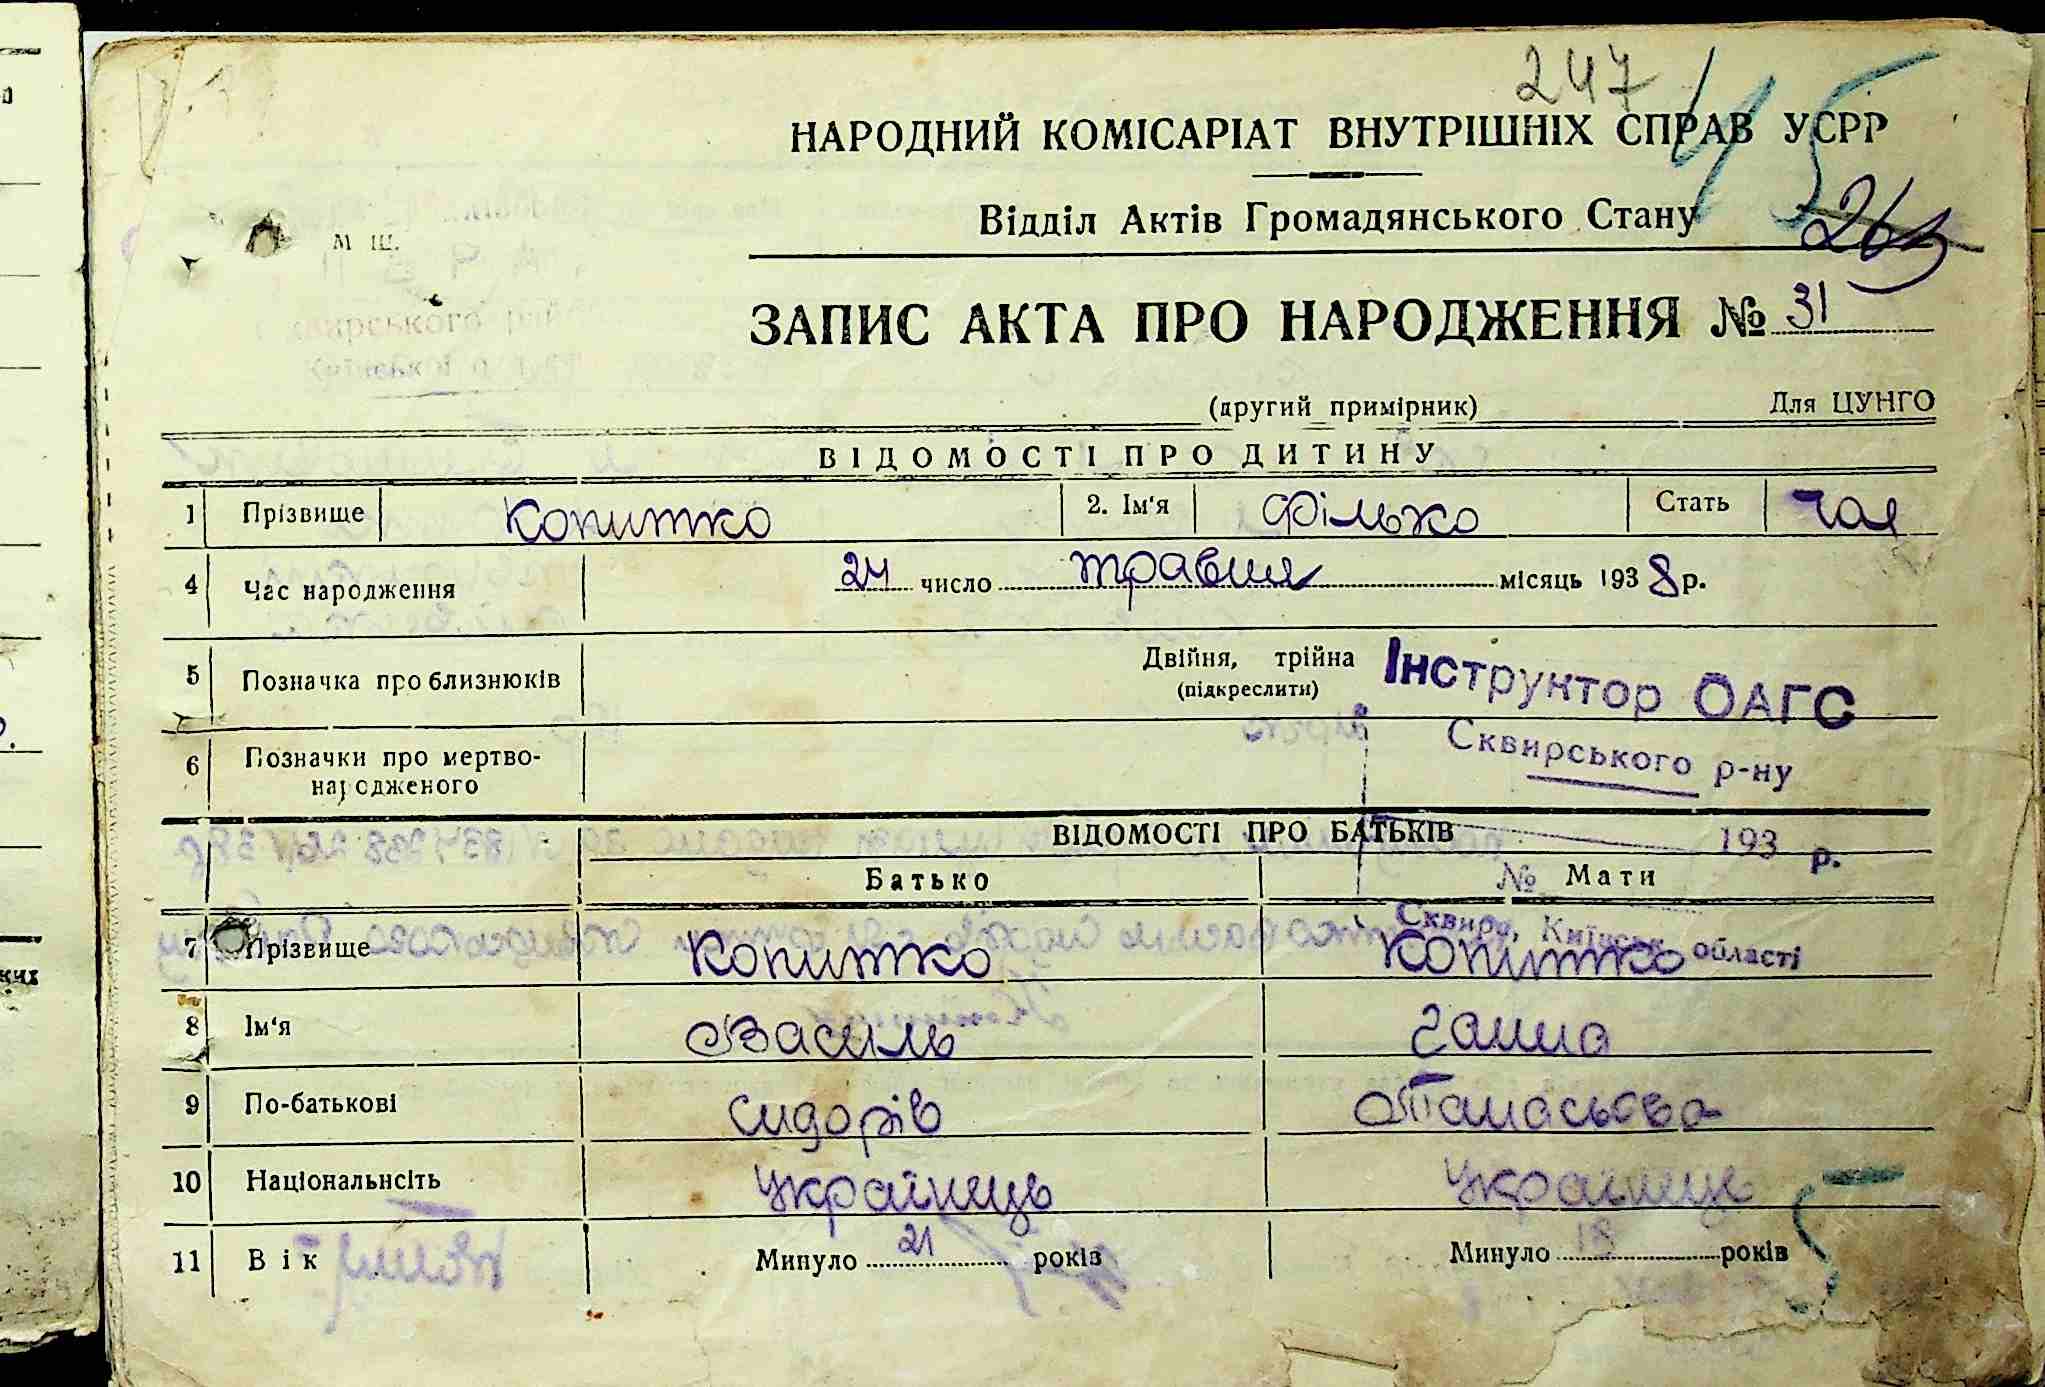 247
45
НАРОДНИЙ КОМІСАРІАТ ВНУТРІШНІХ СПРАВ УСРР
Відділ Актів Громадянського Стану
м ш.
ЗАПИС АКТА ПРО НАРОДЖЕННЯ № 31
(другий примірник) Для ЦУНГО
ВІДОМОСТІ ПРО ДИТИНУ
1 Прізвище Копитко 2. Ім'я Філько Стать чол
4 Час народження 24 число травня місяць 1938 р.
5 Позначка про близнюків Двійня, трійна
(підкреслити)
Інструктор ОАГС
Сквирського р-ну
6 Позначки про мертво-
народженого
ВІДОМОСТІ ПРО БАТЬКІВ
193 р.
Батько Мати
№
Сквира, Київськ. області
7 Прізвище Копитко Копитко
8 Ім'я Василь Ганна
9 По-батькові Сидорів Танасьова
10 Національнсіть Українець Українець
11 Вік Минуло 21 років Минуло 18 років